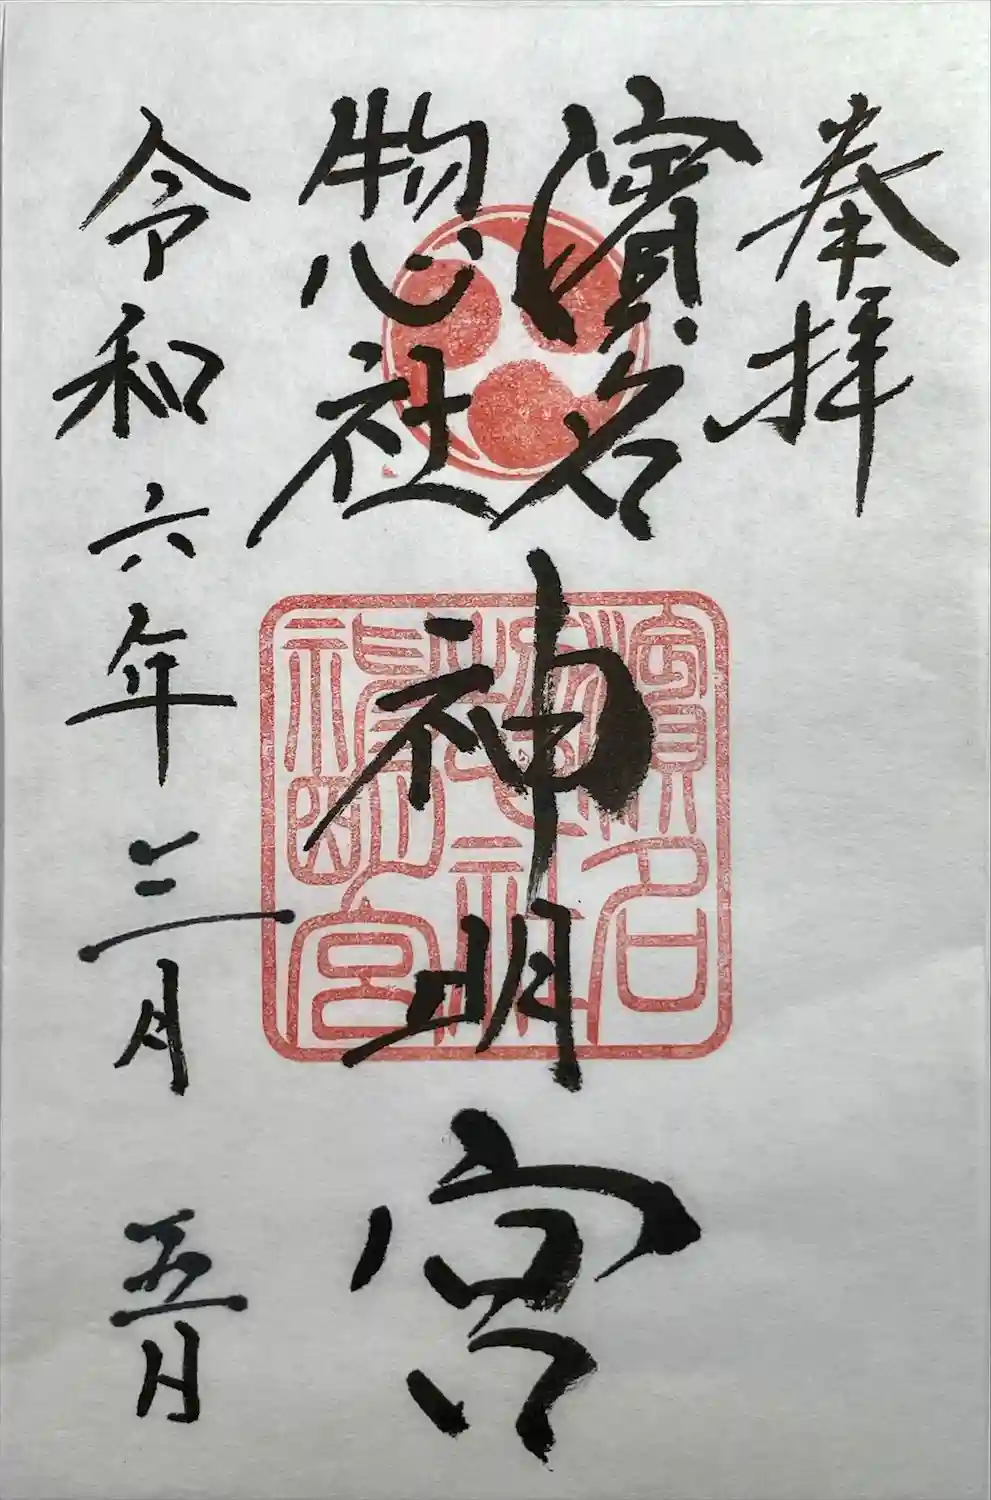 奉拝
濱名
惣社
神明宮
令和六年三月五日
濱名
惣社
神明宮